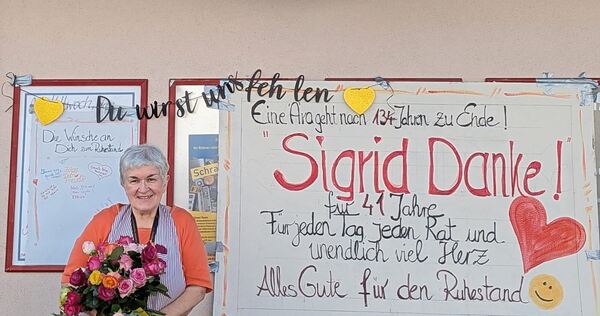 Du wirst uns fehlen
Die Wünsche an
Dich zum Ruhestand
Eine Ära geht nach 134 Jahren zu Ende!
"Sigrid Danke!"
für 41 Jahre
Für jeden Tag jeden Rat und
unendlich viel Herz
Alles Gute für den Ruhestand